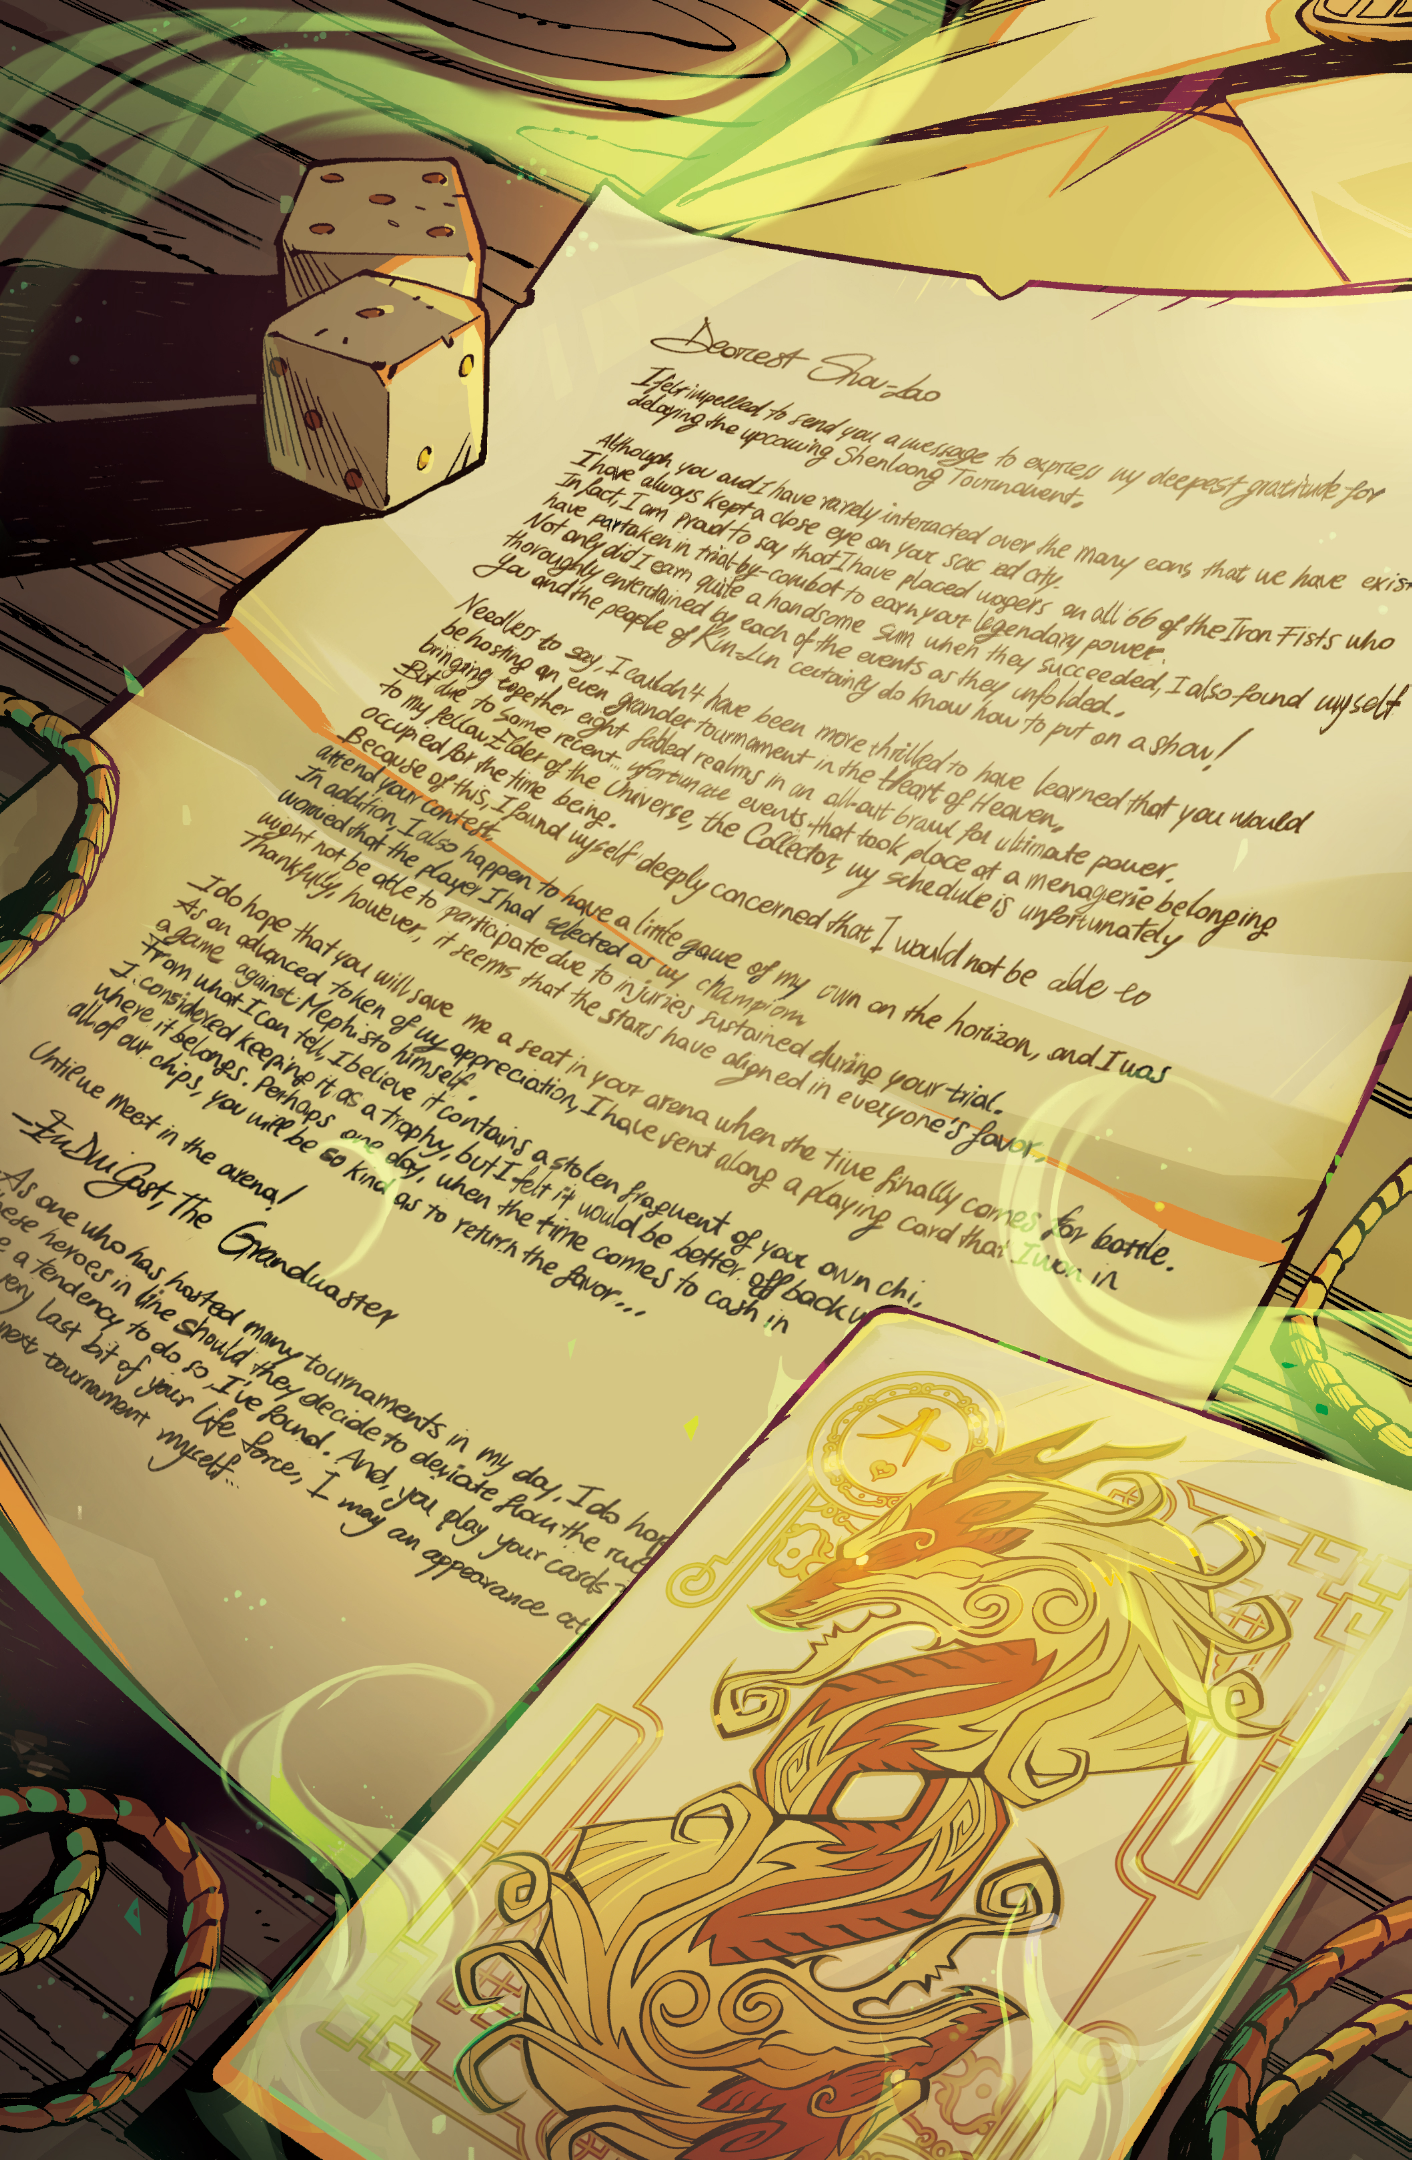 Dearest Shou-Lao
I felt impelled to send you a message to express my deepest gratitude for
delaying the upcoming Shenloong Tournament.
Although you and I have rarely interacted over the many eons that we have exist
I have always kept a close eye on your sac ed city.
In fact, I am proud to say that I have placed wagers on all 66 of the Iron Fists who
have partaken in trial-by-combat to earn your legendary power.
Not only did I earn quite a handsome sum when they succeeded, I also found myself
thoroughly entertained by each of the events as they unfolded.
You and the people of K'un-Lun certainly do know how to put on a show!
Needless to say, I couldn't have been more thrilled to have learned that you would
be hosting an even grander tournament in the Heart of Heaven,
bringing together eight fabled realms in an all-out brawl for ultimate power.
But due to some recent... ufortunate events that took place at a menagerie belonging
to my fellow Elder of the Universe, the Collector, my schedule is unfortunately
occupied for the time being.
Because of this, I found myself deeply concerned that I would not be able to
attend your contest.
In addition, I also happen to have a little game of my own on the horizon, and I was
worried that the player I had selected as my champion
might not be able to participate due to injuries sustained during your trial.
Thankfully, however, it seems that the stars have aligned in everyone's favor.
I do hope that you will save me a seat in your arena when the time finally comes for battle.
As an advanced token of my appreciation, I have sent along a playing card that I won in
a game against Mephisto himself.
From what I can tell, I believe it contains a stolen fragment of your own chi.
I considered keeping it as a trophy, but I felt it would be better off back w
where it belongs. Perhaps one day, when the time comes to cash in
all of our chips, you will be so kind as to return the favor...
Until we meet in the arena!
—En Dwi Gast, The Grandmaster
As one who has hosted many tournaments in my day, I do hop
hese heroes in line should they decide to deviate from the rul
e a tendency to do so, I've found. And, you play your cards
very last bit of your life force, I may an appearance at
next tournament myself...